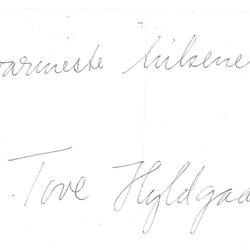 varmeste hilsene
. Tove Hyldgaa